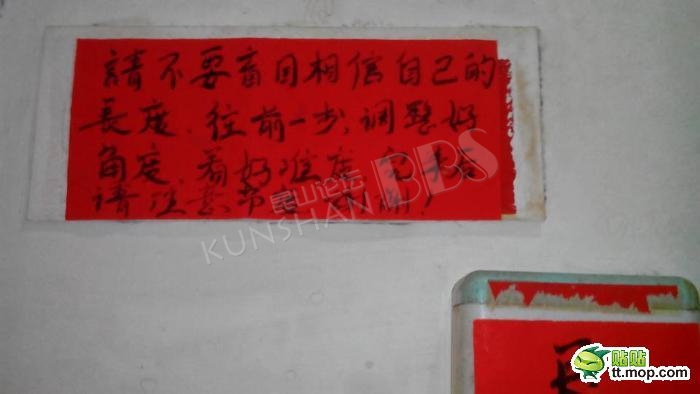 請不要盲目相信自己的
長度、往前一步,调整好
角度、看好准度,完毕后
请注意节度 谢谢!
昆山论坛
KUNSHAN BBS
贴贴
tt.mop.com